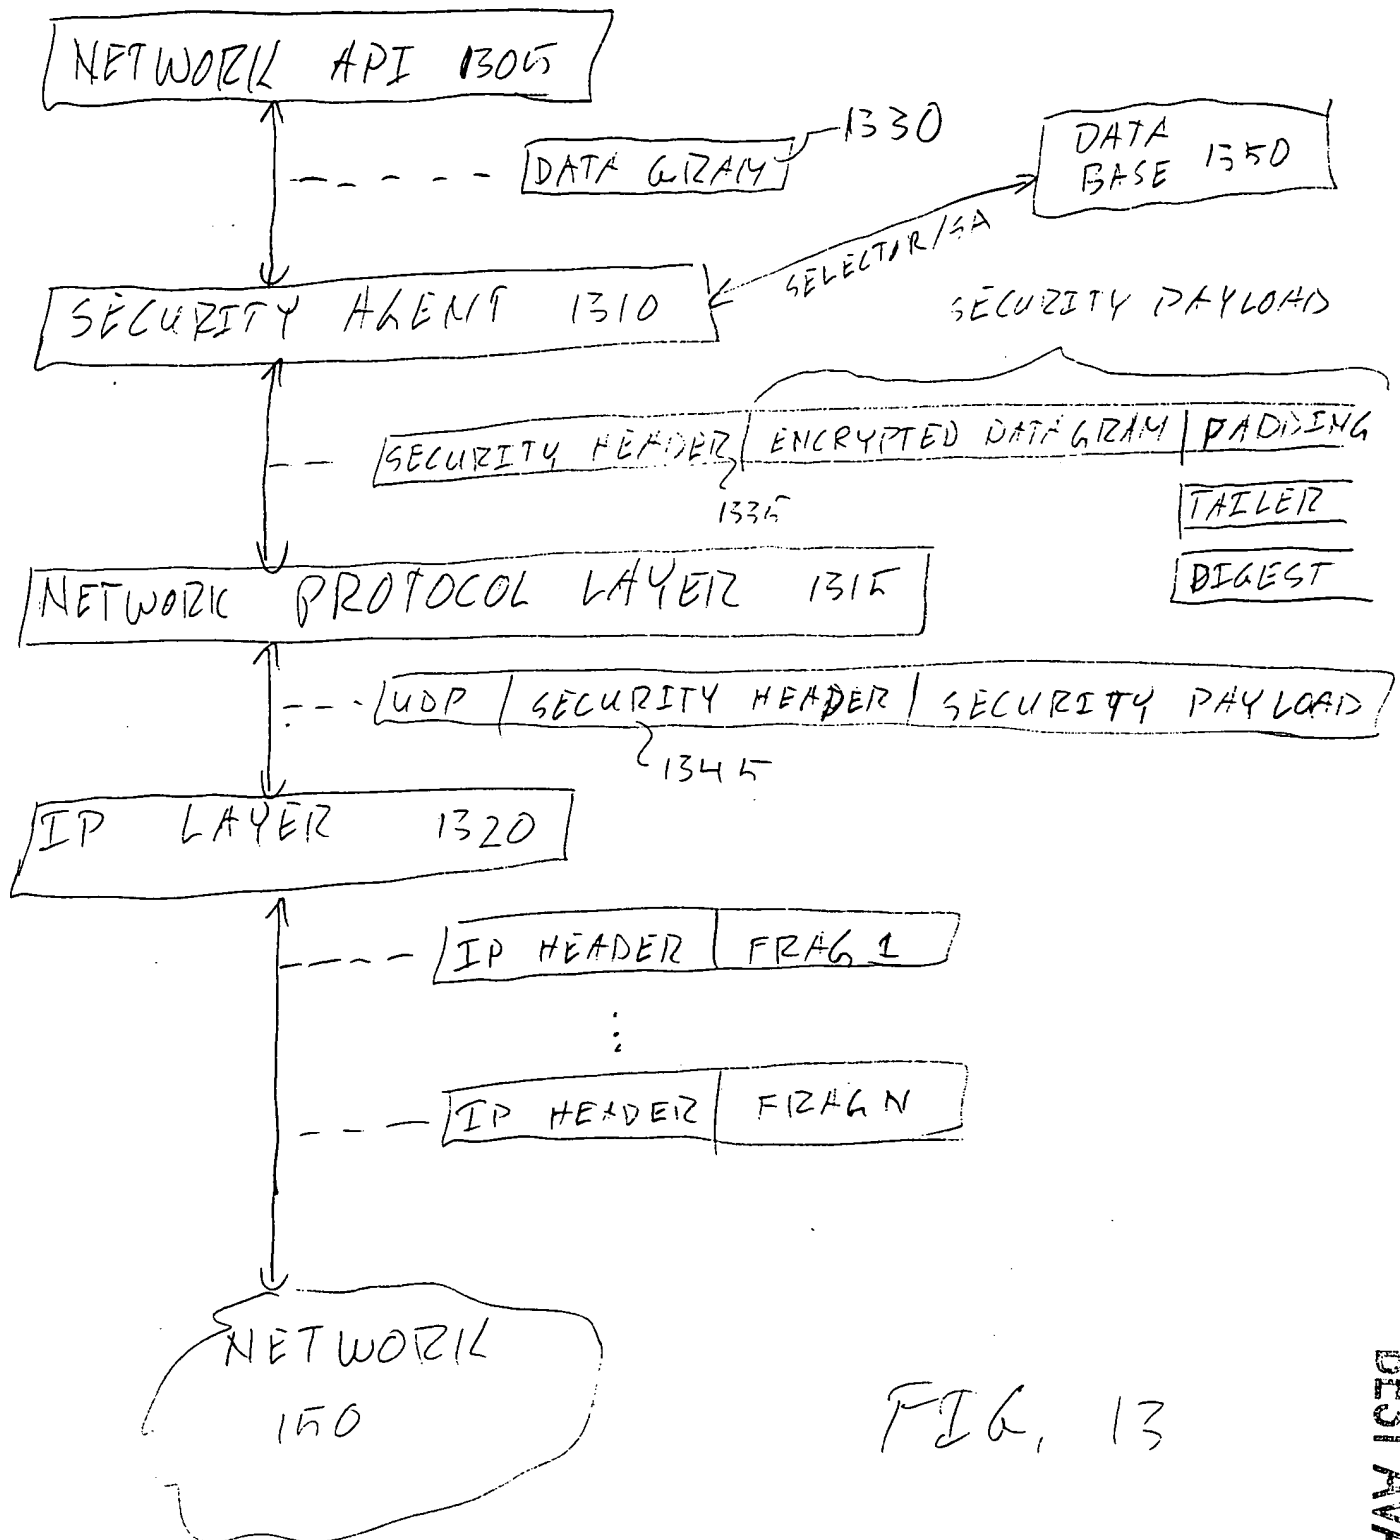 NETWORK API 1305
1330
DATAGRAM
DATA
BASE 1350
SELECTOR/SA
SECURITY AGENT 1310
SECURITY PAYLOAD
SECURITY HEADER | ENCRYPTED DATAGRAM | PADDING
1335
TAILER
DIGEST
NETWORK PROTOCOL LAYER 1315
UDP | SECURITY HEADER | SECURITY PAYLOAD
1345
IP LAYER 1320
IP HEADER | FRAG 1
IP HEADER | FRAG N
NETWORK
150
FIG. 13